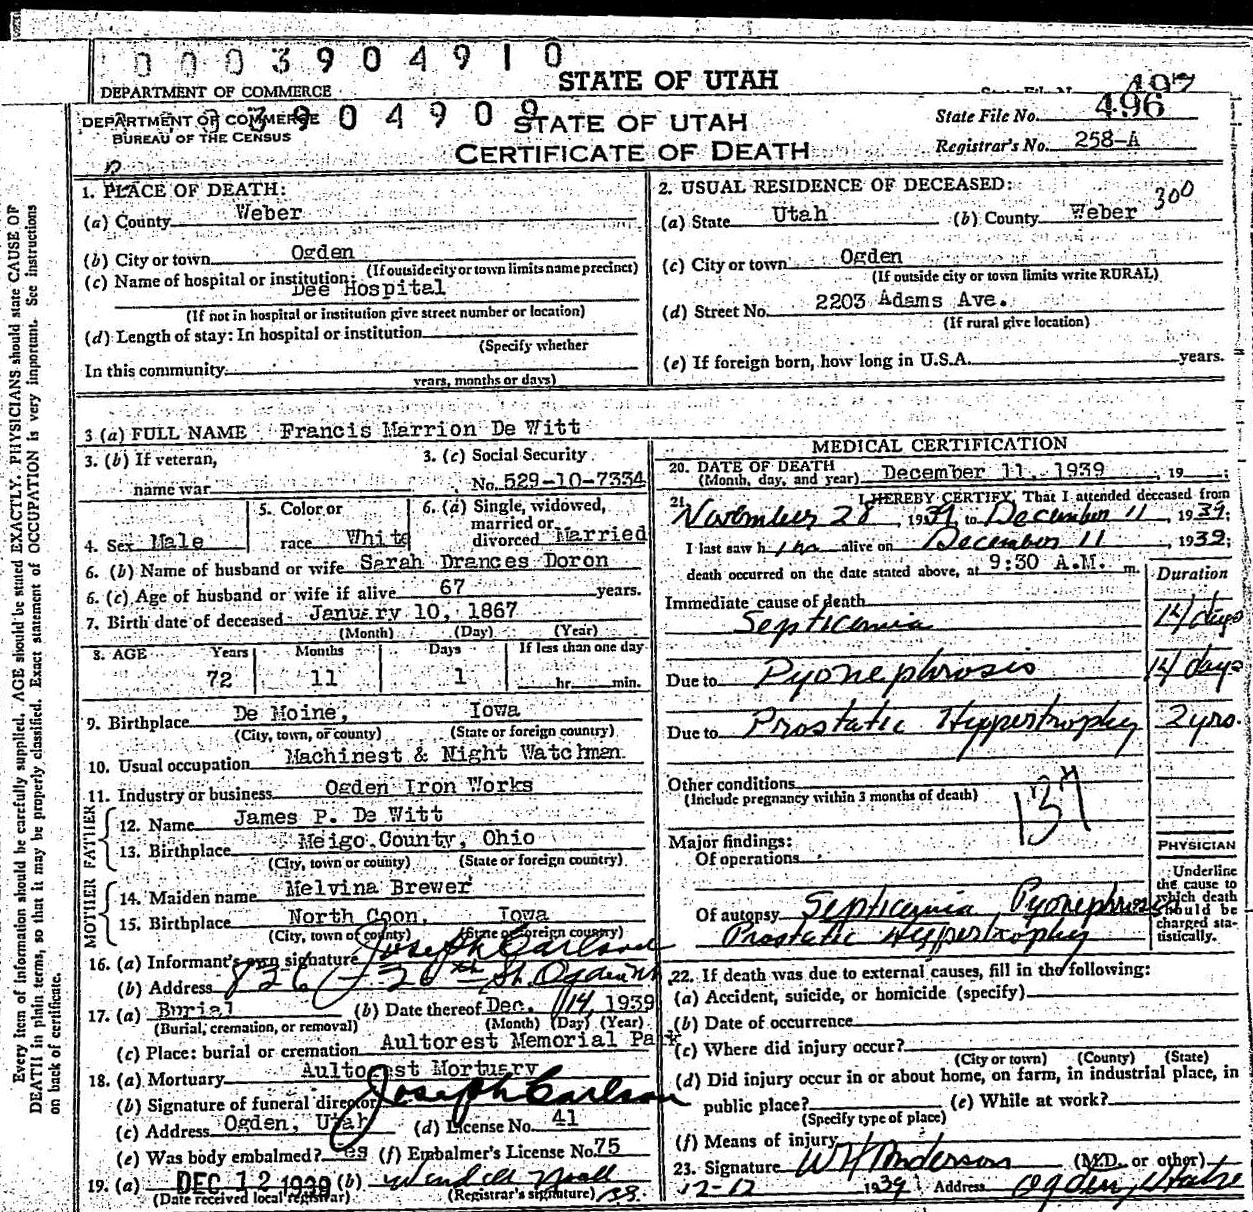 0003904910
DEPARTMENT OF COMMERCE STATE OF UTAH 497
DEPARTMENT OF COMMERCE 03904909 STATE OF UTAH State File No. 496
BUREAU OF THE CENSUS CERTIFICATE OF DEATH Registrar's No. 258-A
1. PLACE OF DEATH:
(a) County Weber
(b) City or town Ogden
(If outside city or town limits name precinct)
(c) Name of hospital or institution:
Dee Hospital
(If not in hospital or institution give street number or location)
(d) Length of stay: In hospital or institution
(Specify whether
In this community
years, months or days)
2. USUAL RESIDENCE OF DECEASED: 300
(a) State Utah (b) County Weber
(c) City or town Ogden
(If outside city or town limits write RURAL)
(d) Street No. 2203 Adams Ave.
(If rural give location)
(e) If foreign born, how long in U.S.A. years.
3 (a) FULL NAME Francis Marrion De Witt
3. (b) If veteran, 3. (c) Social Security
name war No. 529-10-7334
4. Sex Male 5. Color or race White 6. (a) Single, widowed, married or divorced Married
6. (b) Name of husband or wife Sarah Drances Doron
6. (c) Age of husband or wife if alive 67 years.
7. Birth date of deceased January 10, 1867
(Month) (Day) (Year)
8. AGE Years Months Days If less than one day
72 11 1 hr. min.
9. Birthplace De Moine, Iowa
(City, town, or county) (State or foreign country)
10. Usual occupation Machinest & Night Watchman
11. Industry or business Ogden Iron Works
FATHER
12. Name James P. De Witt
13. Birthplace Meigo County, Ohio
(City, town or county) (State or foreign country)
MOTHER
14. Maiden name Melvina Brewer
15. Birthplace North Coon, Iowa
(City, town or county) (State or foreign country)
16. (a) Informant's own signature Joseph Carlson
(b) Address 826 - 26th St. Ogden Ut
17. (a) Burial (b) Date thereof Dec. 14, 1939
(Burial, cremation, or removal) (Month) (Day) (Year)
(c) Place: burial or cremation Aultorest Memorial Park
18. (a) Mortuary Aultorest Mortuary
(b) Signature of funeral director Joseph Carlson
(c) Address Ogden, Utah (d) License No. 41
(e) Was body embalmed? Yes (f) Embalmer's License No. 75
19. (a) DEC 12 1939 (b)
(Date received local registrar) (Registrar's signature)
MEDICAL CERTIFICATION
20. DATE OF DEATH December 11, 1939, 19 ;
(Month, day, and year)
21. I HEREBY CERTIFY, That I attended deceased from
November 28, 1939, to December 11, 1939;
I last saw him alive on December 11, 1939;
death occurred on the date stated above, at 9:30 A.M. m. Duration
Immediate cause of death
Septicemia 14 days
Due to Pyonephrosis 14 days
Due to Prostatic Hyppertrophy 2 yrs.
Other conditions
(Include pregnancy within 3 months of death) 137
Major findings:
Of operations
Of autopsy Septicemia, Pyonephrosis
Prostatic Hyppertrophy
PHYSICIAN
Underline
the cause to
which death
should be
charged sta-
tistically.
22. If death was due to external causes, fill in the following:
(a) Accident, suicide, or homicide (specify)
(b) Date of occurrence
(c) Where did injury occur?
(City or town) (County) (State)
(d) Did injury occur in or about home, on farm, in industrial place, in
public place? (e) While at work?
(Specify type of place)
(f) Means of injury
23. Signature W H Anderson (M.D. or other)
12-12 1939 Address Ogden, Utah
Every item of information should be carefully supplied. AGE should be stated EXACTLY. PHYSICIANS should state CAUSE OF
DEATH in plain terms, so that it may be properly classified. Exact statement of OCCUPATION is very important. See instructions
on back of certificate.